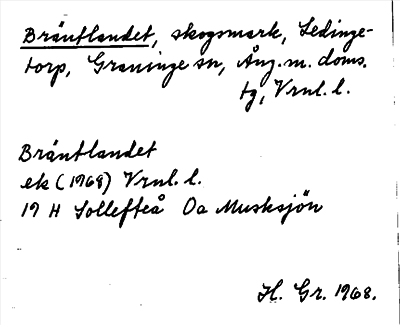 Bräntlandet, skogsmark, Ledinge-
torp, Graninge sn, Ång. m. doms.
tg, Vrnl. l.
Bräntlandet
ek (1968) Vrnl. l.
19 H Sollefteå Oa Musksjön
H. Gr. 1968.